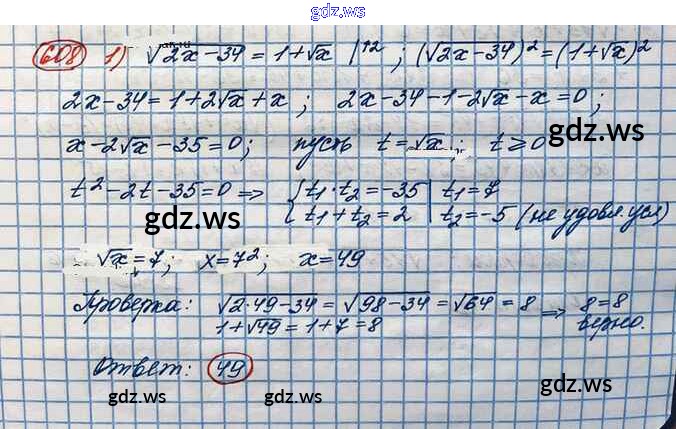 gdz.ws
608 1) √(2x-34) = 1+√x |↑2 ; (√(2x-34))² = (1+√x)²
2x-34=1+2√x+x ; 2x-34-1-2√x-x=0 ;
x-2√x-35=0 ; пусть t=√x ; t≥0
gdz.ws
t²-2t-35=0 => { t₁·t₂=-35 | t₁=7
t₁+t₂=2 | t₂=-5 (не удовл. усл)
gdz.ws
√x=7 ; x=7² ; x=49
Проверка: √(2·49-34)=√(98-34)=√64=8 => 8=8
1+√49=1+7=8 верно.
Ответ: 49
gdz.ws gdz.ws gdz.ws